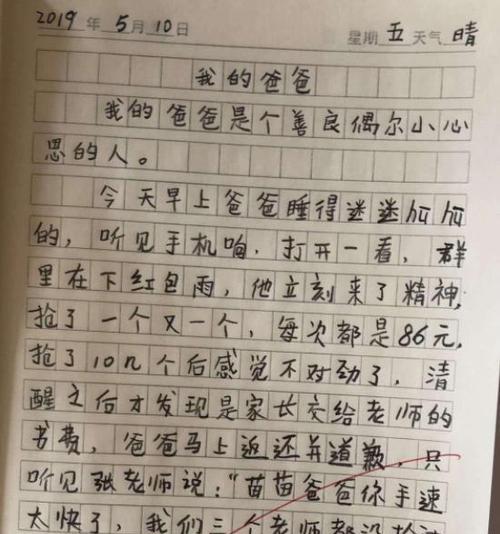 2019年5月10日 星期五 天气晴
我的爸爸
我的爸爸是个善良偶尔小心
思的人。
今天早上爸爸睡得迷迷hú hú
的，听见手机响，打开一看，群
里在下红包雨，他立刻来了精神，
抢了一个又一个，每次都是86元，
抢了10几个后感觉不对劲了，清
醒之后才发现是家长交给老师的
书费，爸爸马上返还并道歉，只
听见张老师说：“苗苗爸爸你手速
太快了，我们三个老师都没抢过